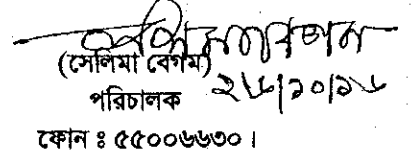 (সেলিমা বেগম)
২৬|১০|১৬
পরিচালক
ফোন ঃ ৫৫০০৬৬৩০।